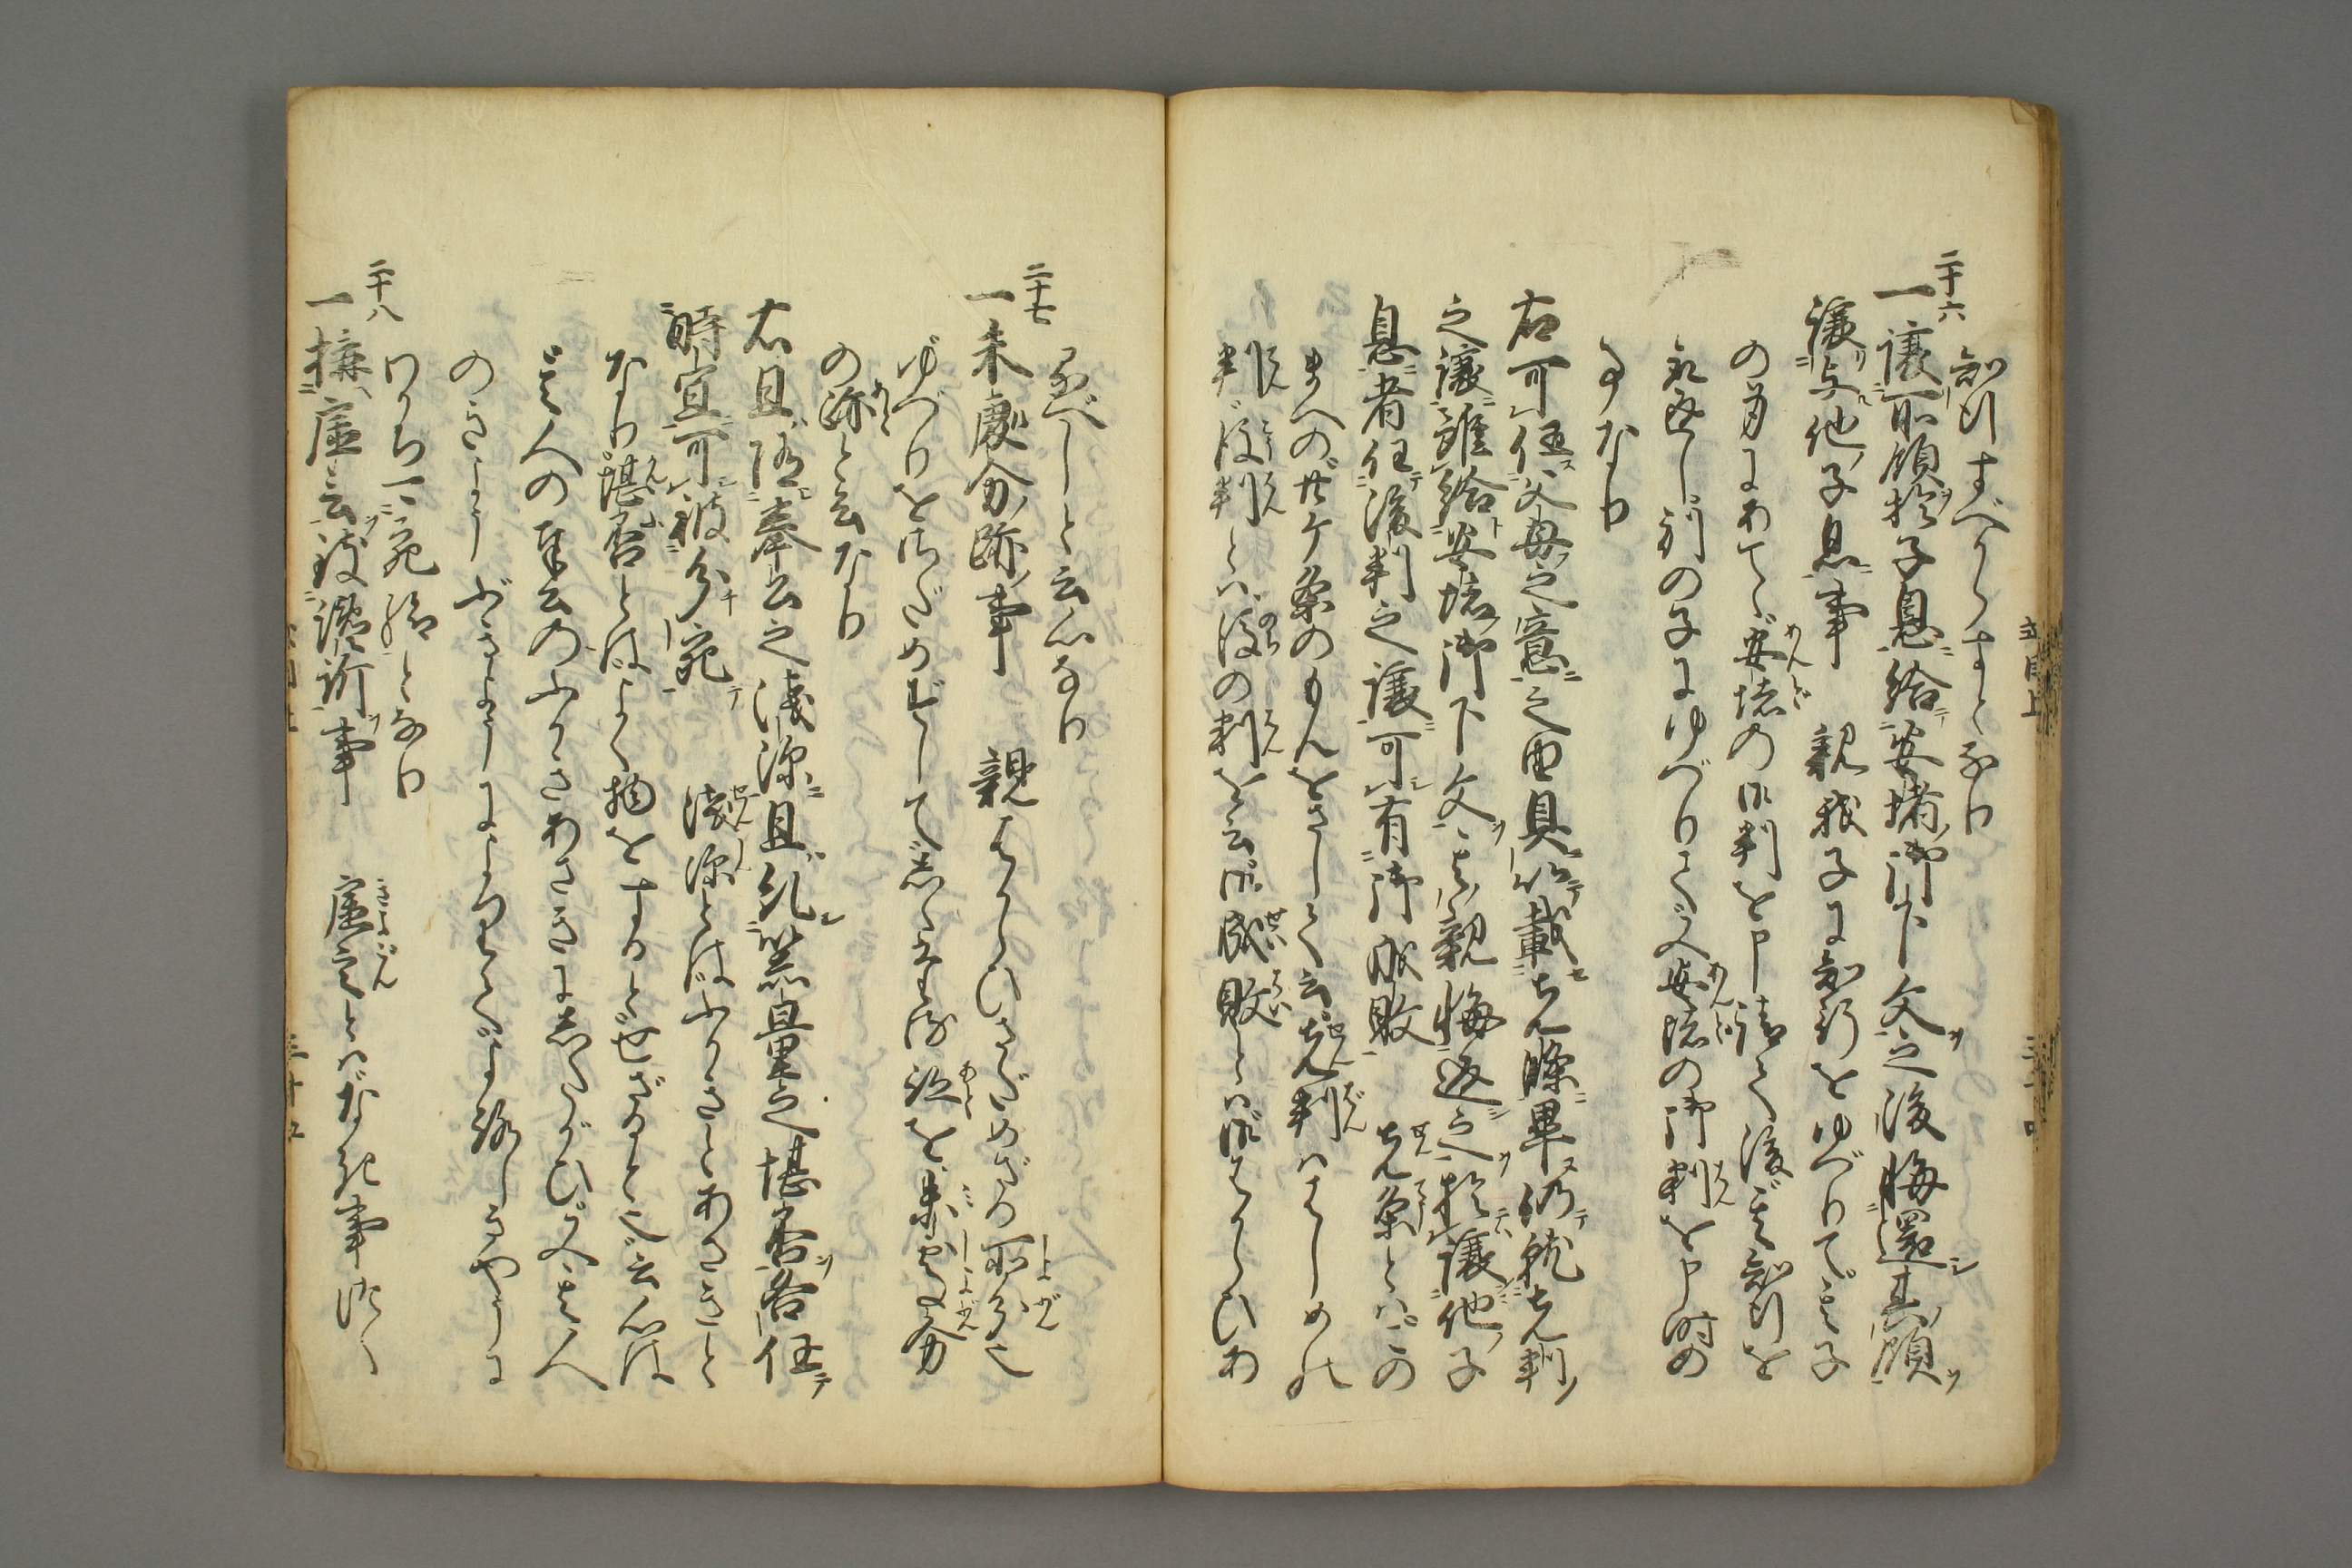 知行すべからすと云なり
二十六
一譲所領於子息給安堵御下文之後悔還其領
譲与他子息事　親我子に知行をゆづりて其子
の方にあてゝ安堵の御判を申請て後其知行を
取返し別の子にゆづりて又安堵の御判を申時の
事なり
右可任父母之意之由具以載先條畢仍就先判
之譲雖給安堵御下文其親悔返之於譲他子
息者任後判之譲可有御成敗　先条とはこの
まへの廿ケ条のもんをさして云先判ははしめの
判後判とは後の判を云御成敗とは御はからひあ
るべしと云心なり
二十七
一未處分跡事　親はからひさだめざる所分也
ゆづりをさだめずして死たる跡を未處分
の跡と云なり
右且随奉公之浅深且糺器量之堪否各任
時宜可被分宛　浅深とはふかきとあさきと
なり堪否とはよく物をするとせざると也云心は
其人の奉公のふかきあさきにしたがひ又其人
のきりやうぶきりやうによりてよろしきやうに
わかち宛給となり
二十八
一搆虚言致讒訴事　虚言とはなき事
式目上
三十四